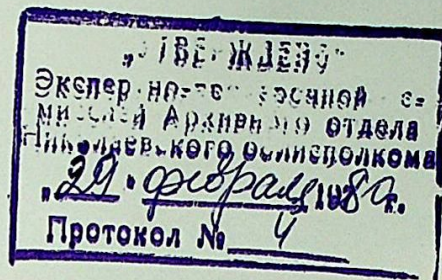 „УТВЕРЖДЕНО"
Экспертно-проверочной ко-
миссией Архивного отдела
Николаевского облисполкома
„29" февраля 1980г.
Протокол № 4